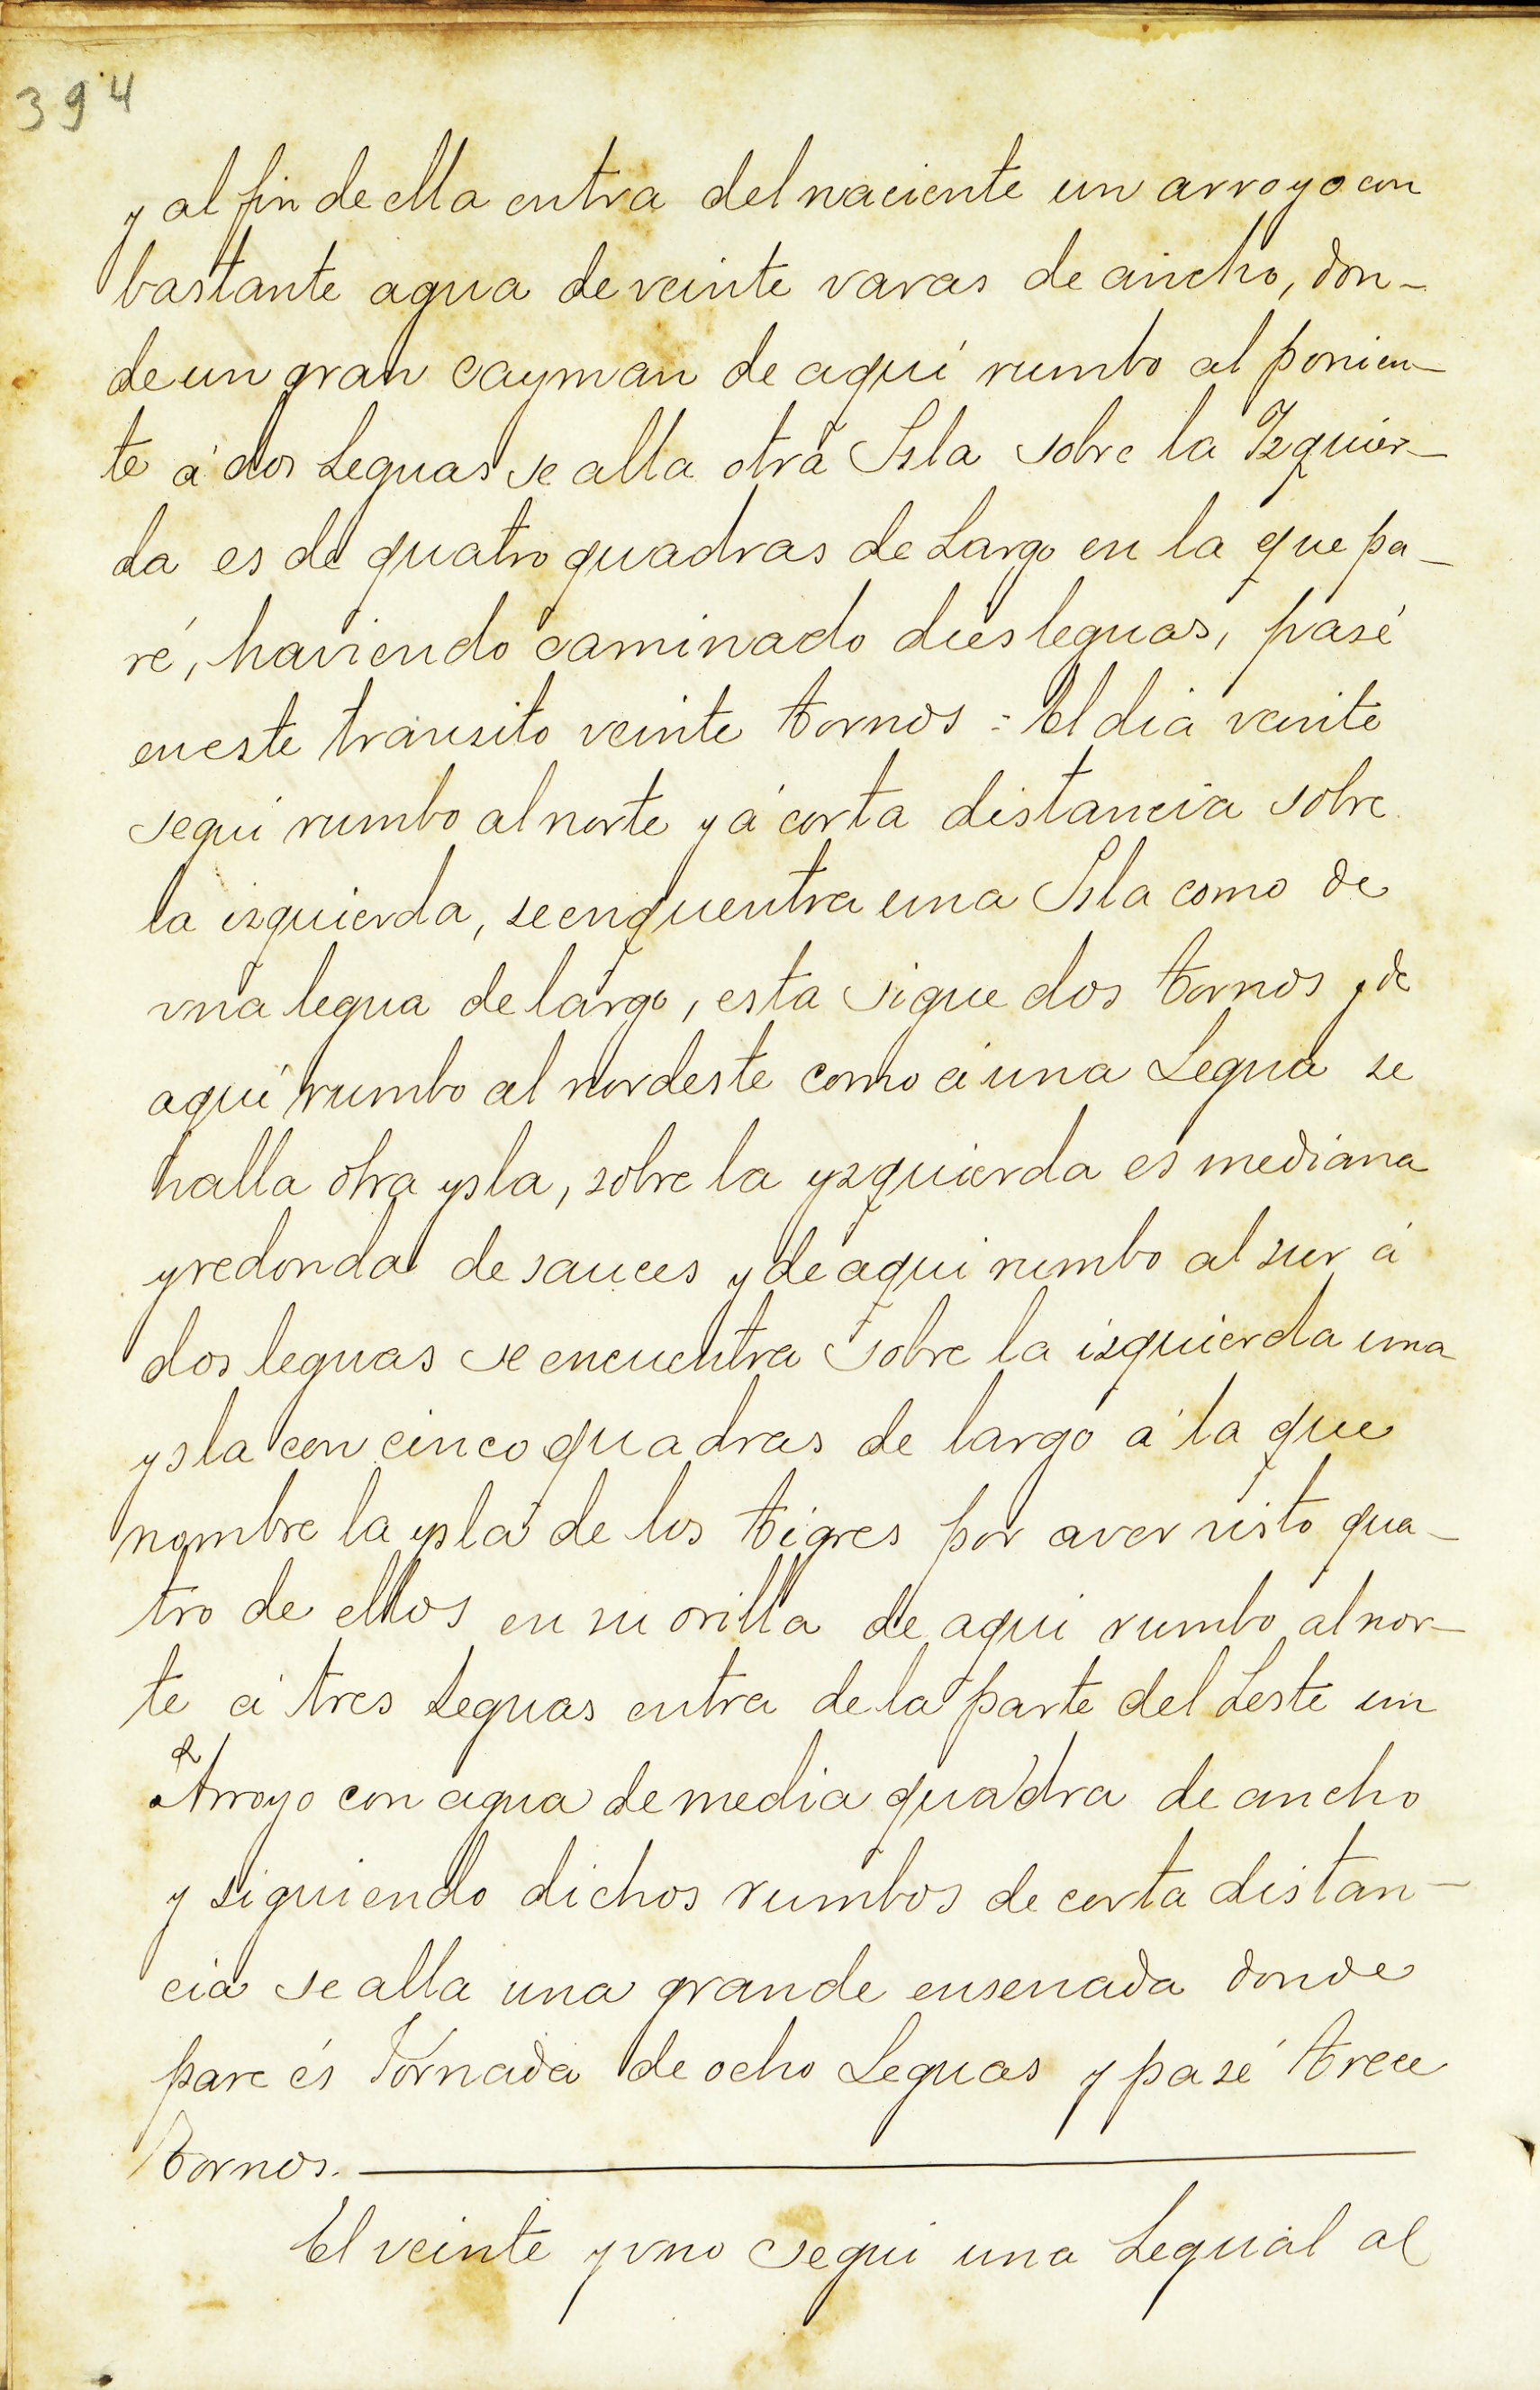 394
y al fin de ella entra del naciente un arroyo con
bastante agua de veinte varas de ancho, don-
de un gran cayman de aquí rumbo al ponien-
te á dos Leguas se alla otra Isla sobre la Izquier-
da es de quatro quadras de Largo en la que pa-
ré, haviendo caminado dies leguas, pasé
en este transito veinte tornos = El dia veinte
segui rumbo al norte y á corta distancia sobre
la izquierda, se enquentra una Isla como de
vna legua de largo, esta sigue dos tornos y de
aquí rumbo al nordeste como á una Legua se
halla otra ysla, sobre la yzquierda es mediana
y redonda de sauces y de aqui rumbo al sur á
dos leguas se encuentra sobre la izquierda una
ysla con cinco quadras de largo á la que
nombre la ysla de los tigres por aver visto qua-
tro de ellos en su orilla de aqui rumbo al nor-
te á tres Leguas entra de la parte del Leste un
Arroyo con agua de media quadra de ancho
y siguiendo dichos rumbos de corta distan-
cia se alla una grande ensenada donde
pare és Jornada de ocho Leguas y pasé trece
tornos.
El veinte y vno segui una Legua al